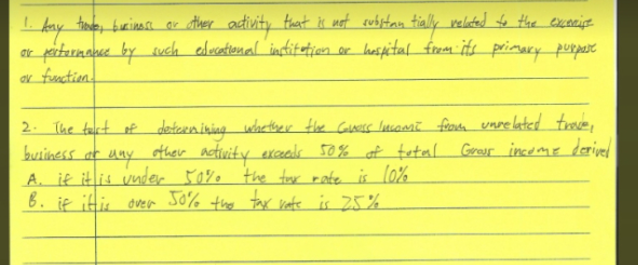 1. Any trade, business or other activity that is not substantially related to the exercise
or performance by such educational institution or hospital from its primary purpose
or function.
2. The test of determining whether the Gross Income from unrelated trade,
business or any other activity exceeds 50% of total Gross income derived
A. if it is under 50% the tax rate is 10%
B. if it is over 50% the tax rate is 25%